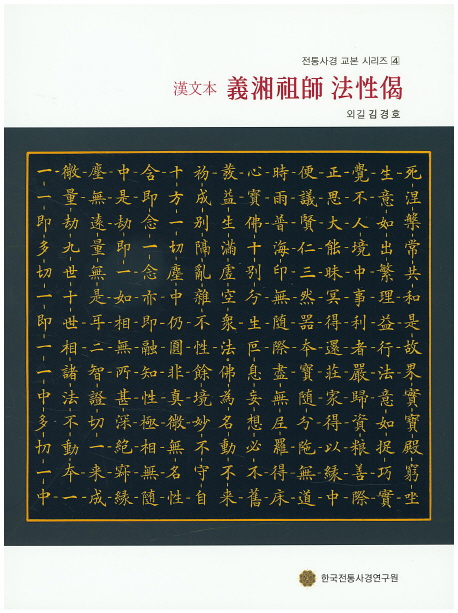 전통사경 교본 시리즈 ④
漢文本 義湘祖師 法性偈
외길 김경호
死涅槃常共和是故界實寶殿窮坐
生意如出繁理益行法意如捉巧實
覺不人境中事利者嚴歸資糧善際
正思大能昧冥得還莊家得以緣中
便議賢仁三然器本寶隨分陀無道
時雨普海印無隨際盡無尼羅得床
心寶佛十別分生叵息妄想必不舊
發益生滿虛空衆法佛爲名動不來
初成別隔亂雜不性餘境妙不守自
十方一切塵中仍圓非真微無名性
含即念一念亦即融知性極相無隨
中是劫即一如相無所甚深絕寂緣
塵無遠量無是耳二智證切一來成
微量劫九世十世相諸法不動本一
一一即多切一即一一中多切一中
한국전통사경연구원